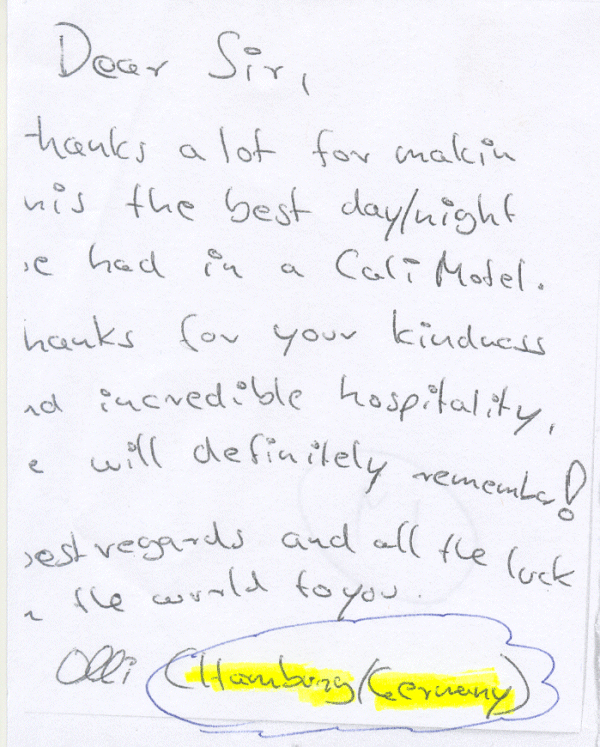 Dear Sir,
thanks a lot for makin
his the best day/night
e had in a Cali Motel.
hanks for your kindness
nd incredible hospitality,
e will definitely remember!
best regards and all the luck
n the world to you.
Olli (Hamburg/Germany)